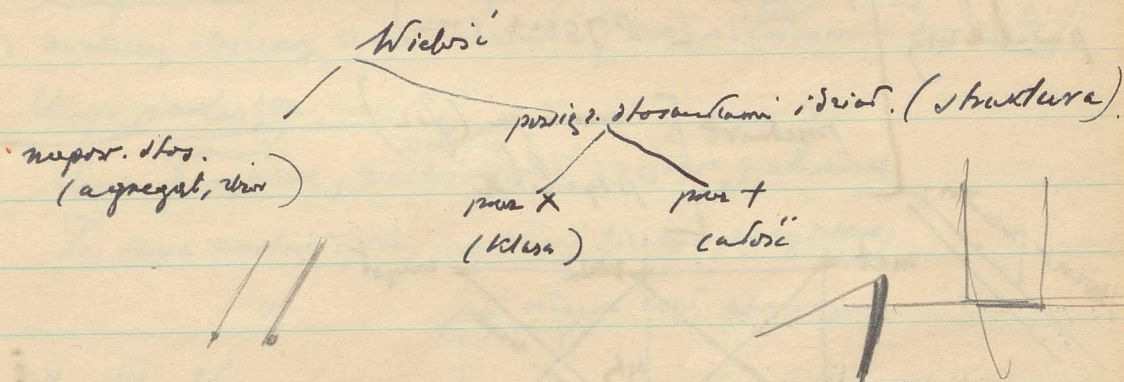 Wielość
powiąz. stosunkami i dział. (struktura).
niepow. stos.
(agregat, zbiór)
pow X
pow +
(klasa)
całość